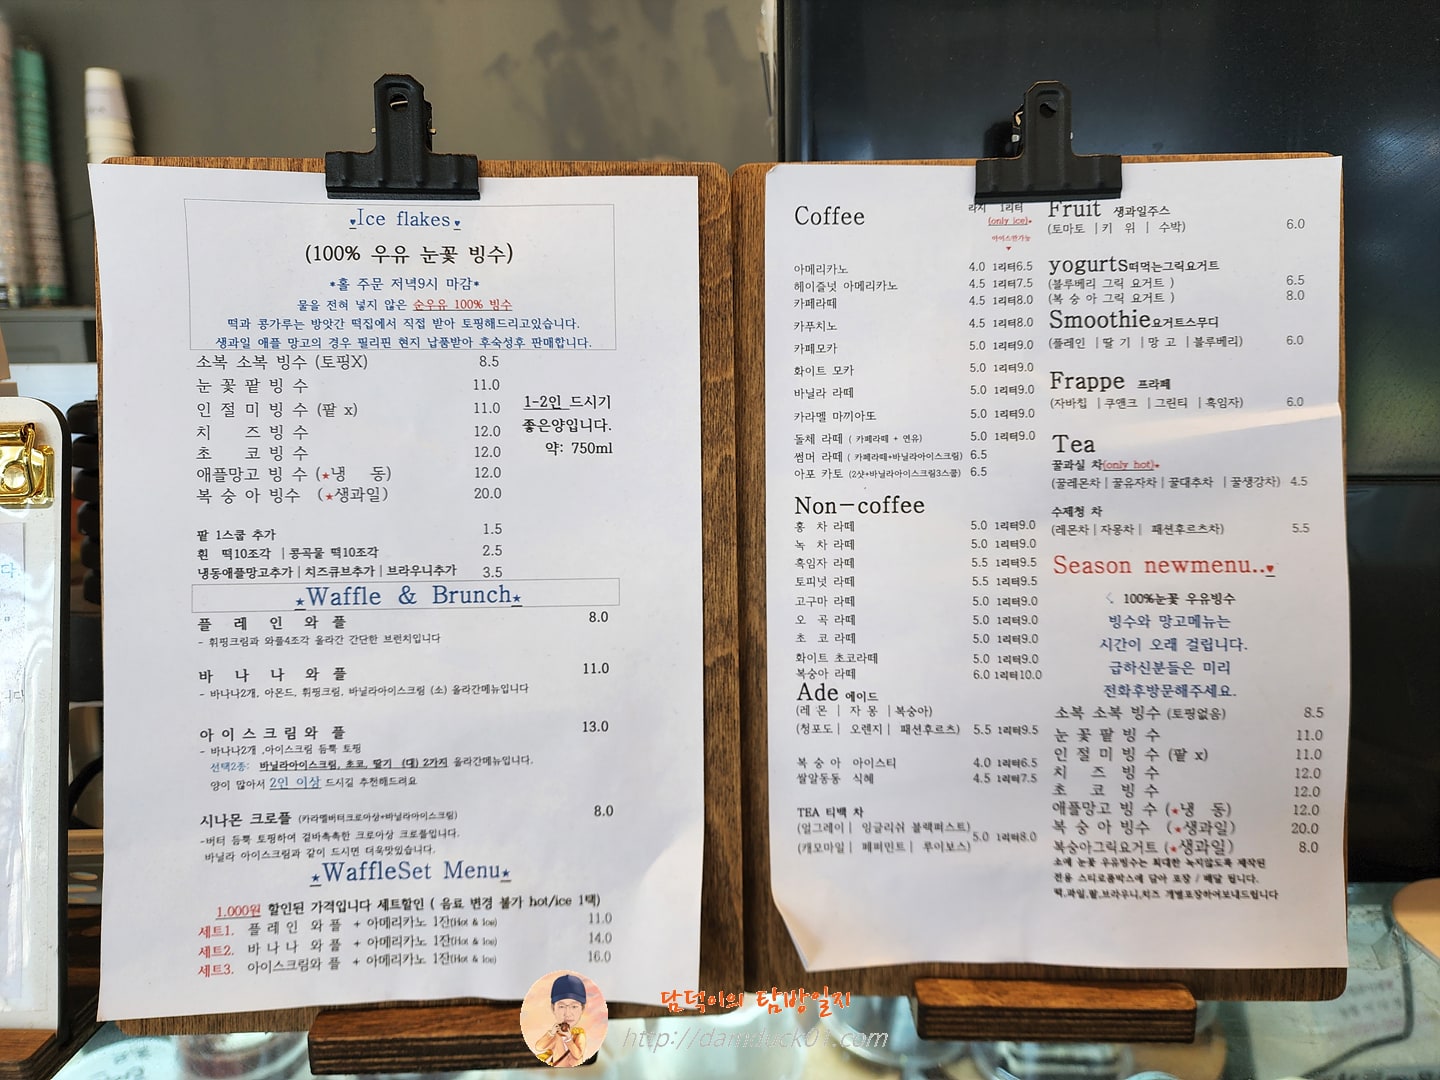 ♥Ice flakes♥
(100% 우유 눈꽃 빙수)
*홀 주문 저녁9시 마감*
물을 전혀 넣지 않은 순우유 100% 빙수
떡과 콩가루는 방앗간 떡집에서 직접 받아 토핑해드리고있습니다.
생과일 애플 망고의 경우 필리핀 현지 납품받아 후숙성후 판매합니다.
소복 소복 빙수 (토핑X) 8.5
눈 꽃 팥 빙 수 11.0
인 절 미 빙 수 (팥 x) 11.0
치 즈 빙 수 12.0
초 코 빙 수 12.0
애플망고 빙 수 (★냉 동) 12.0
복 숭 아 빙수 (★생과일) 20.0
1-2인 드시기
좋은양입니다.
약: 750ml
팥 1스쿱 추가 1.5
흰 떡10조각 | 콩곡물 떡10조각 2.5
냉동애플망고추가 | 치즈큐브추가 | 브라우니추가 3.5
★Waffle & Brunch★
플 레 인 와 플 8.0
- 휘핑크림과 와플4조각 올라간 간단한 브런치입니다
바 나 나 와 플 11.0
- 바나나2개, 아몬드, 휘핑크림, 바닐라아이스크림 (소) 올라간메뉴입니다
아 이 스 크 림 와 플 13.0
- 바나나2개 ,아이스크림 듬뿍 토핑
선택2종: 바닐라아이스크림, 초코, 딸기 (대) 2가지 올라간메뉴입니다.
양이 많아서 2인 이상 드시길 추천해드려요
시나몬 크로플 (카라멜버터크로아상+바닐라아이스크림) 8.0
-버터 듬뿍 토핑하여 겉바촉촉한 크로아상 크로플입니다.
바닐라 아이스크림과 같이 드시면 더욱맛있습니다.
★WaffleSet Menu★
1.000원 할인된 가격입니다 세트할인 ( 음료 변경 불가 hot/ice 1택)
세트1. 플 레 인 와 플 + 아메리카노 1잔(Hot & Ice) 11.0
세트2. 바 나 나 와 플 + 아메리카노 1잔(Hot & Ice) 14.0
세트3. 아이스크림와 플 + 아메리카노 1잔(Hot & Ice) 16.0
Coffee
라지 1리터
(only ice)★
아이스만가능
♥
아메리카노 4.0 1리터6.5
헤이즐넛 아메리카노 4.5 1리터7.5
카페라떼 4.5 1리터8.0
카푸치노 4.5 1리터8.0
카페모카 5.0 1리터9.0
화이트 모카 5.0 1리터9.0
바닐라 라떼 5.0 1리터9.0
카라멜 마끼아또 5.0 1리터9.0
돌체 라떼 ( 카페라떼 + 연유) 5.0 1리터9.0
썸머 라떼 ( 카페라떼+바닐라아이스크림) 6.5
아포 카토 (2샷+바닐라아이스크림3스쿱) 6.5
Non-coffee
홍 차 라떼 5.0 1리터9.0
녹 차 라떼 5.0 1리터9.0
흑임자 라떼 5.5 1리터9.5
토피넛 라떼 5.5 1리터9.5
고구마 라떼 5.0 1리터9.0
오 곡 라떼 5.0 1리터9.0
초 코 라떼 5.0 1리터9.0
화이트 초코라떼 5.0 1리터9.0
복숭아 라떼 6.0 1리터10.0
Ade 에이드
(레 몬 | 자 몽 |복숭아)
(청포도 | 오렌지 | 패션후르츠) 5.5 1리터9.5
복 숭 아 아이스티 4.0 1리터6.5
쌀알동동 식혜 4.5 1리터7.5
TEA 티백 차
(얼그레이 | 잉글리쉬 블랙퍼스트)
5.0 1리터8.0
(캐모마일 | 페퍼민트 | 루이보스)
Fruit 생과일주스
(토마토 |키 위 | 수박) 6.0
yogurts떠먹는그릭요거트
(블루베리 그릭 요거트 ) 6.5
(복 숭 아 그릭 요거트 ) 8.0
Smoothie요거트스무디
(플레인 |딸 기 |망 고 |블루베리) 6.0
Frappe 프라페
(자바칩 |쿠앤크 |그린티 |흑임자) 6.0
Tea
꿀과실 차(only hot)★
(꿀레몬차| 꿀유자차| 꿀대추차 |꿀생강차) 4.5
수제청 차
(레몬차|자몽차| 패션후르츠차) 5.5
Season newmenu..♥
☾ 100%눈꽃 우유빙수
빙수와 망고메뉴는
시간이 오래 걸립니다.
급하신분들은 미리
전화후방문해주세요.
소복 소복 빙수 (토핑없음) 8.5
눈 꽃 팥 빙 수 11.0
인 절 미 빙 수 (팥 x) 11.0
치 즈 빙 수 12.0
초 코 빙 수 12.0
애플망고 빙 수 (★냉 동) 12.0
복 숭 아 빙수 (★생과일) 20.0
복숭아그릭요거트 (★생과일) 8.0
소에 눈꽃 우유빙수는 최대한 녹지않도록 제작된
전용 스티로폼박스에 담아 포장 / 배달 됩니다.
떡,과일,팥,브라우니,치즈 개별포장하여보내드립니다
담덕이의 탐방일지
http://damduck01.com